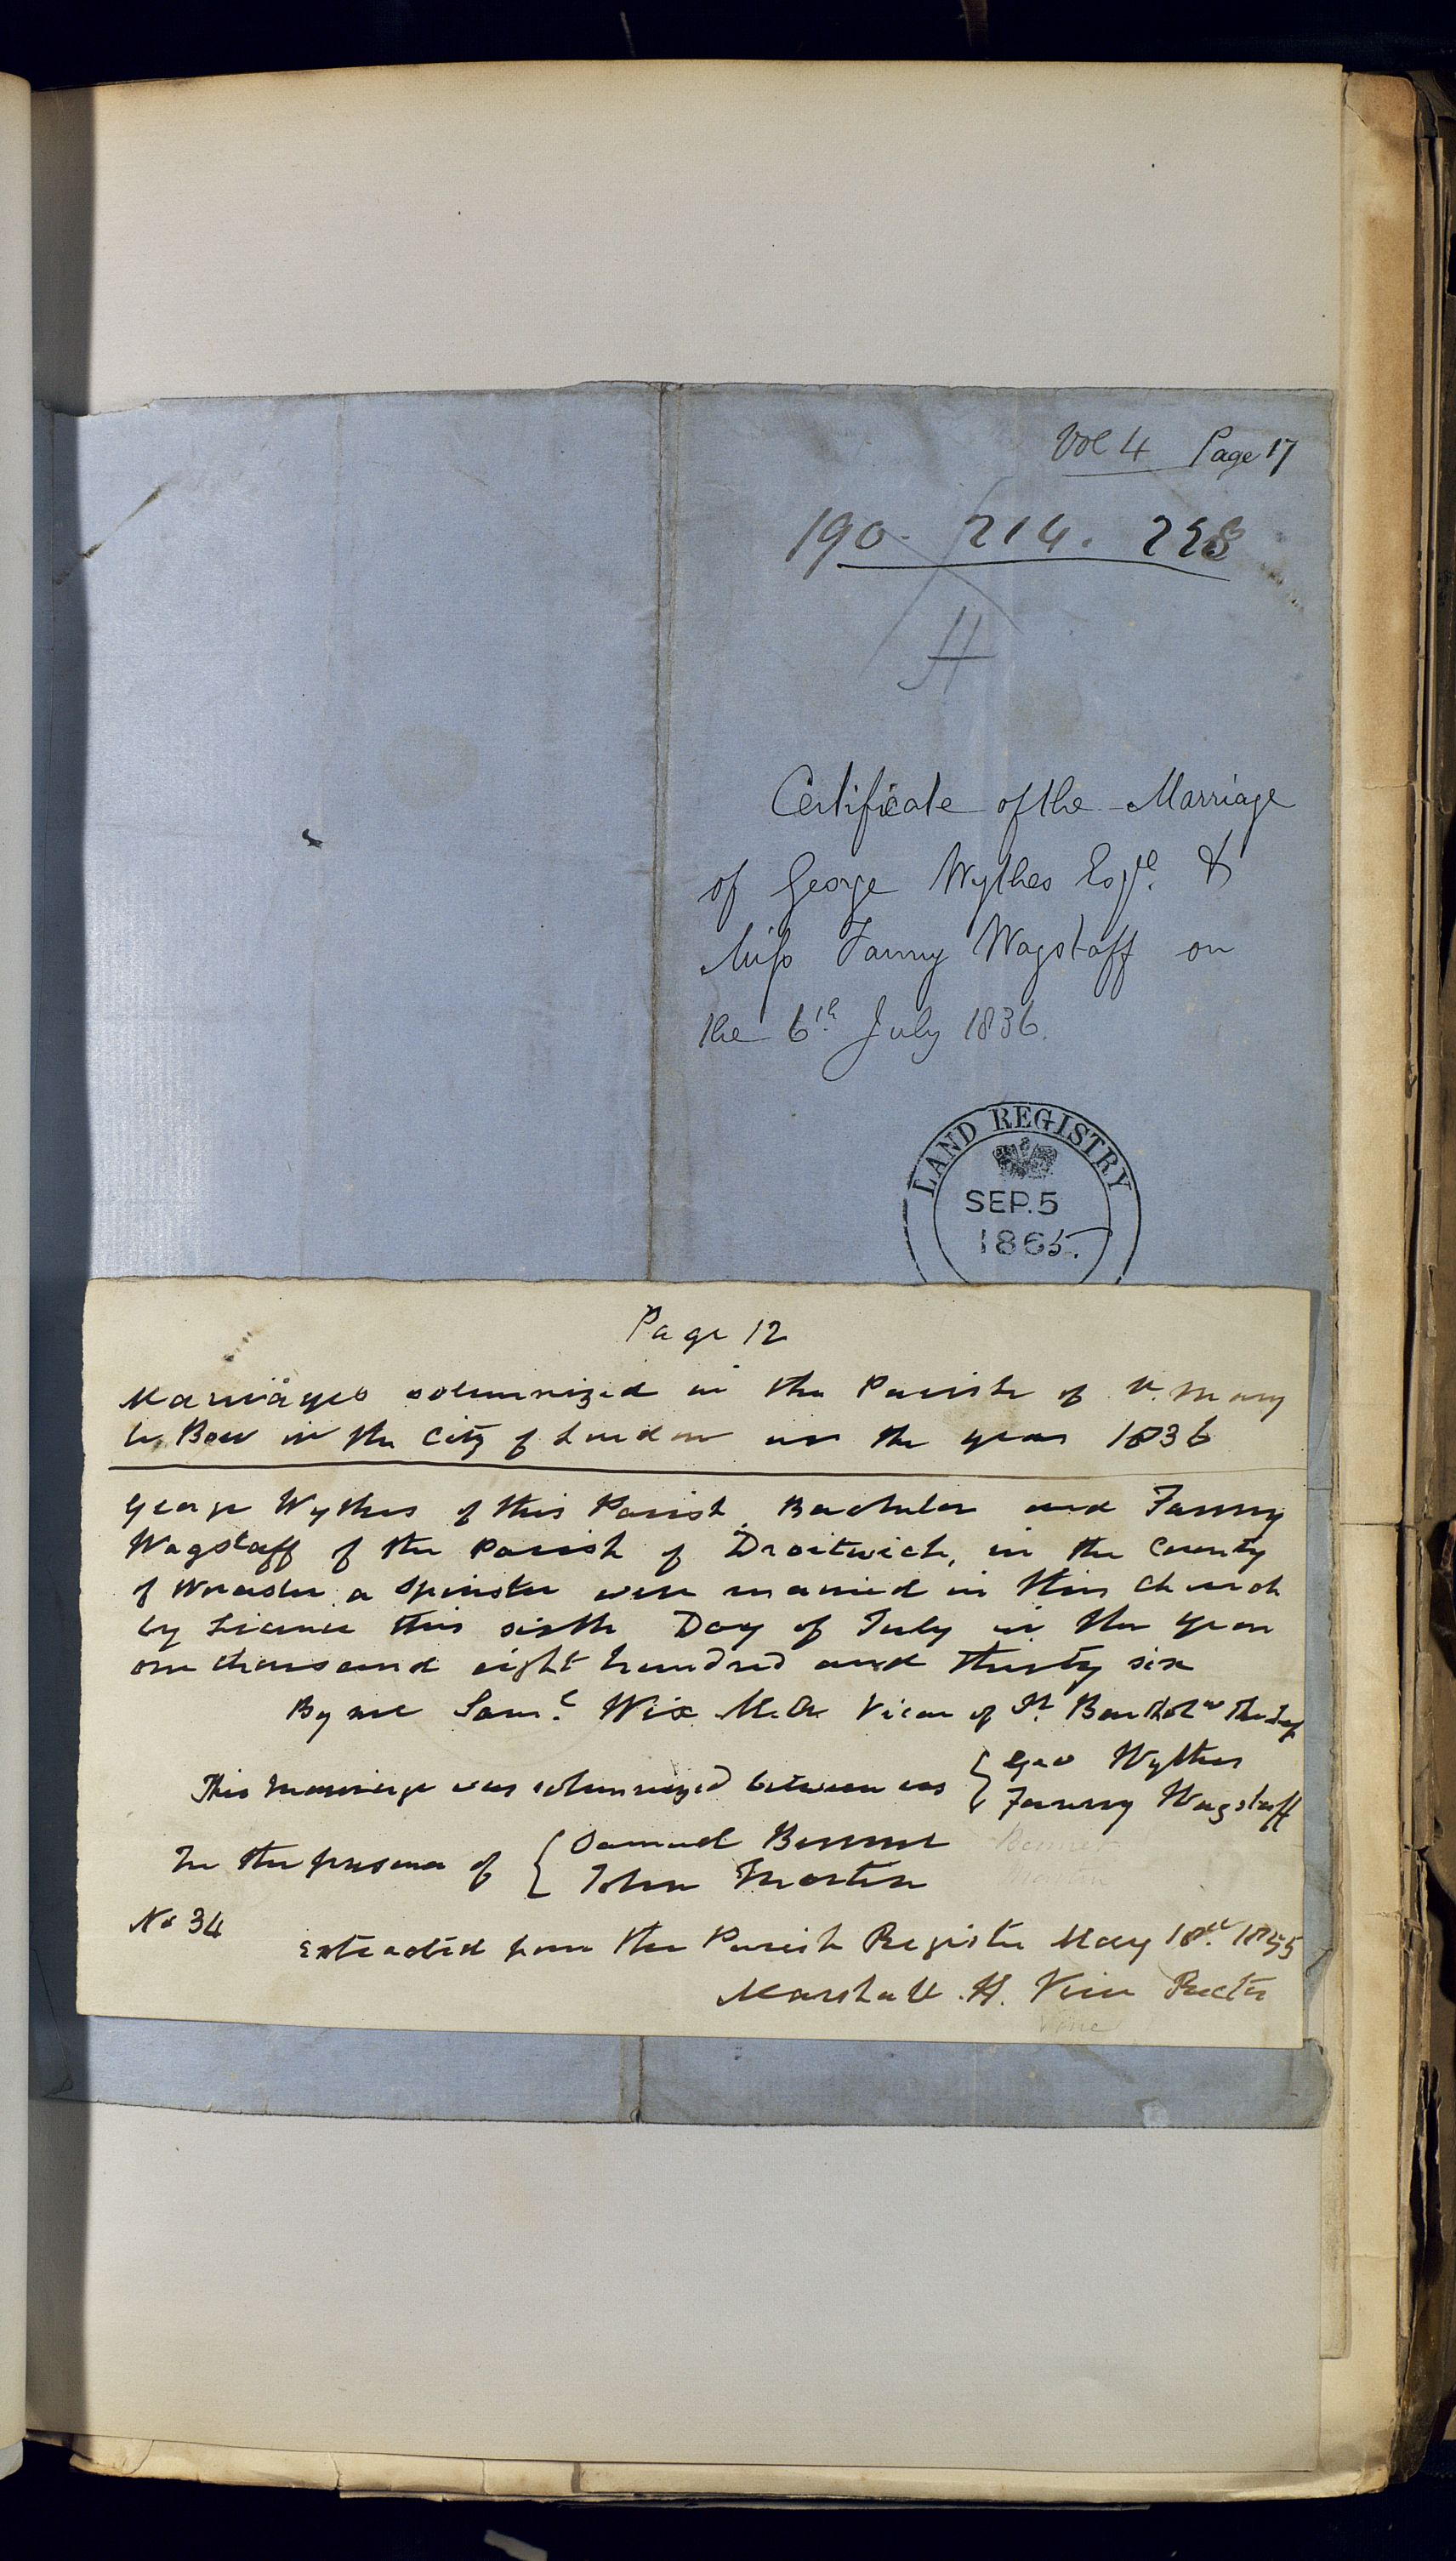 Vol 4 Page 17
190. 214. 228
H
Certificate of the Marriage
of George Wythes Esqre. &
Miss Fanny Wagstaff on
the 6th July 1836.
LAND REGISTRY
SEP. 5
1865.
Page 12
Marriages solemnized in the Parish of St. Mary
le Bow in the City of London in the year 1836
George Wythes of this Parish, Bachelor and Fanny
Wagstaff of the Parish of Droitwich, in the County
of Worcester a Spinster were married in this Church
by Licence this sixth Day of July in the year
one thousand eight hundred and thirty six
By me Saml. Wix M.A. Vicar of St. Bartholw the Less
This marriage was solemnized between us { Geo Wythes
Fanny Wagstaff
In the presence of { Samuel Bennet Bennet
John Martin Martin
No 34
Extracted from the Parish Register May 18th. 1855
Marshall H. Vine Rector
Vine